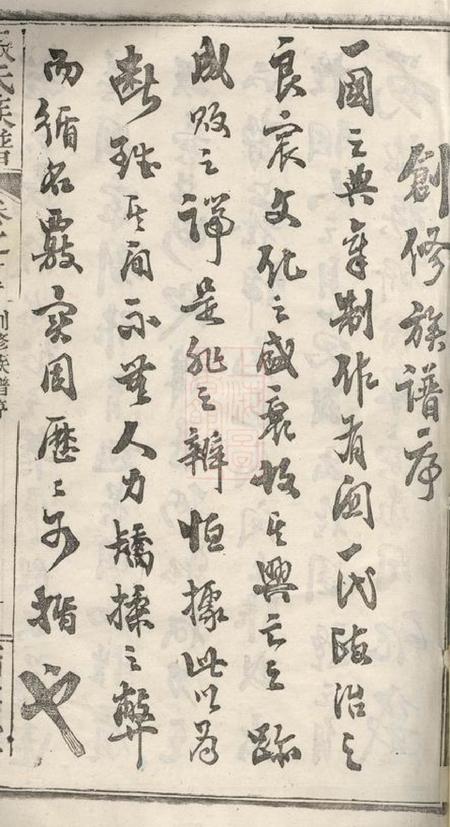 創修族譜序
一國之典章制作有關一代政治之
良窳文化之盛衰故其興亡之跡
成敗之謀是非之辨恒據此以為
斷雖其間不無人力矯揉之弊
而循名覈实固歷歷可指也
氏族譜
創修族譜序